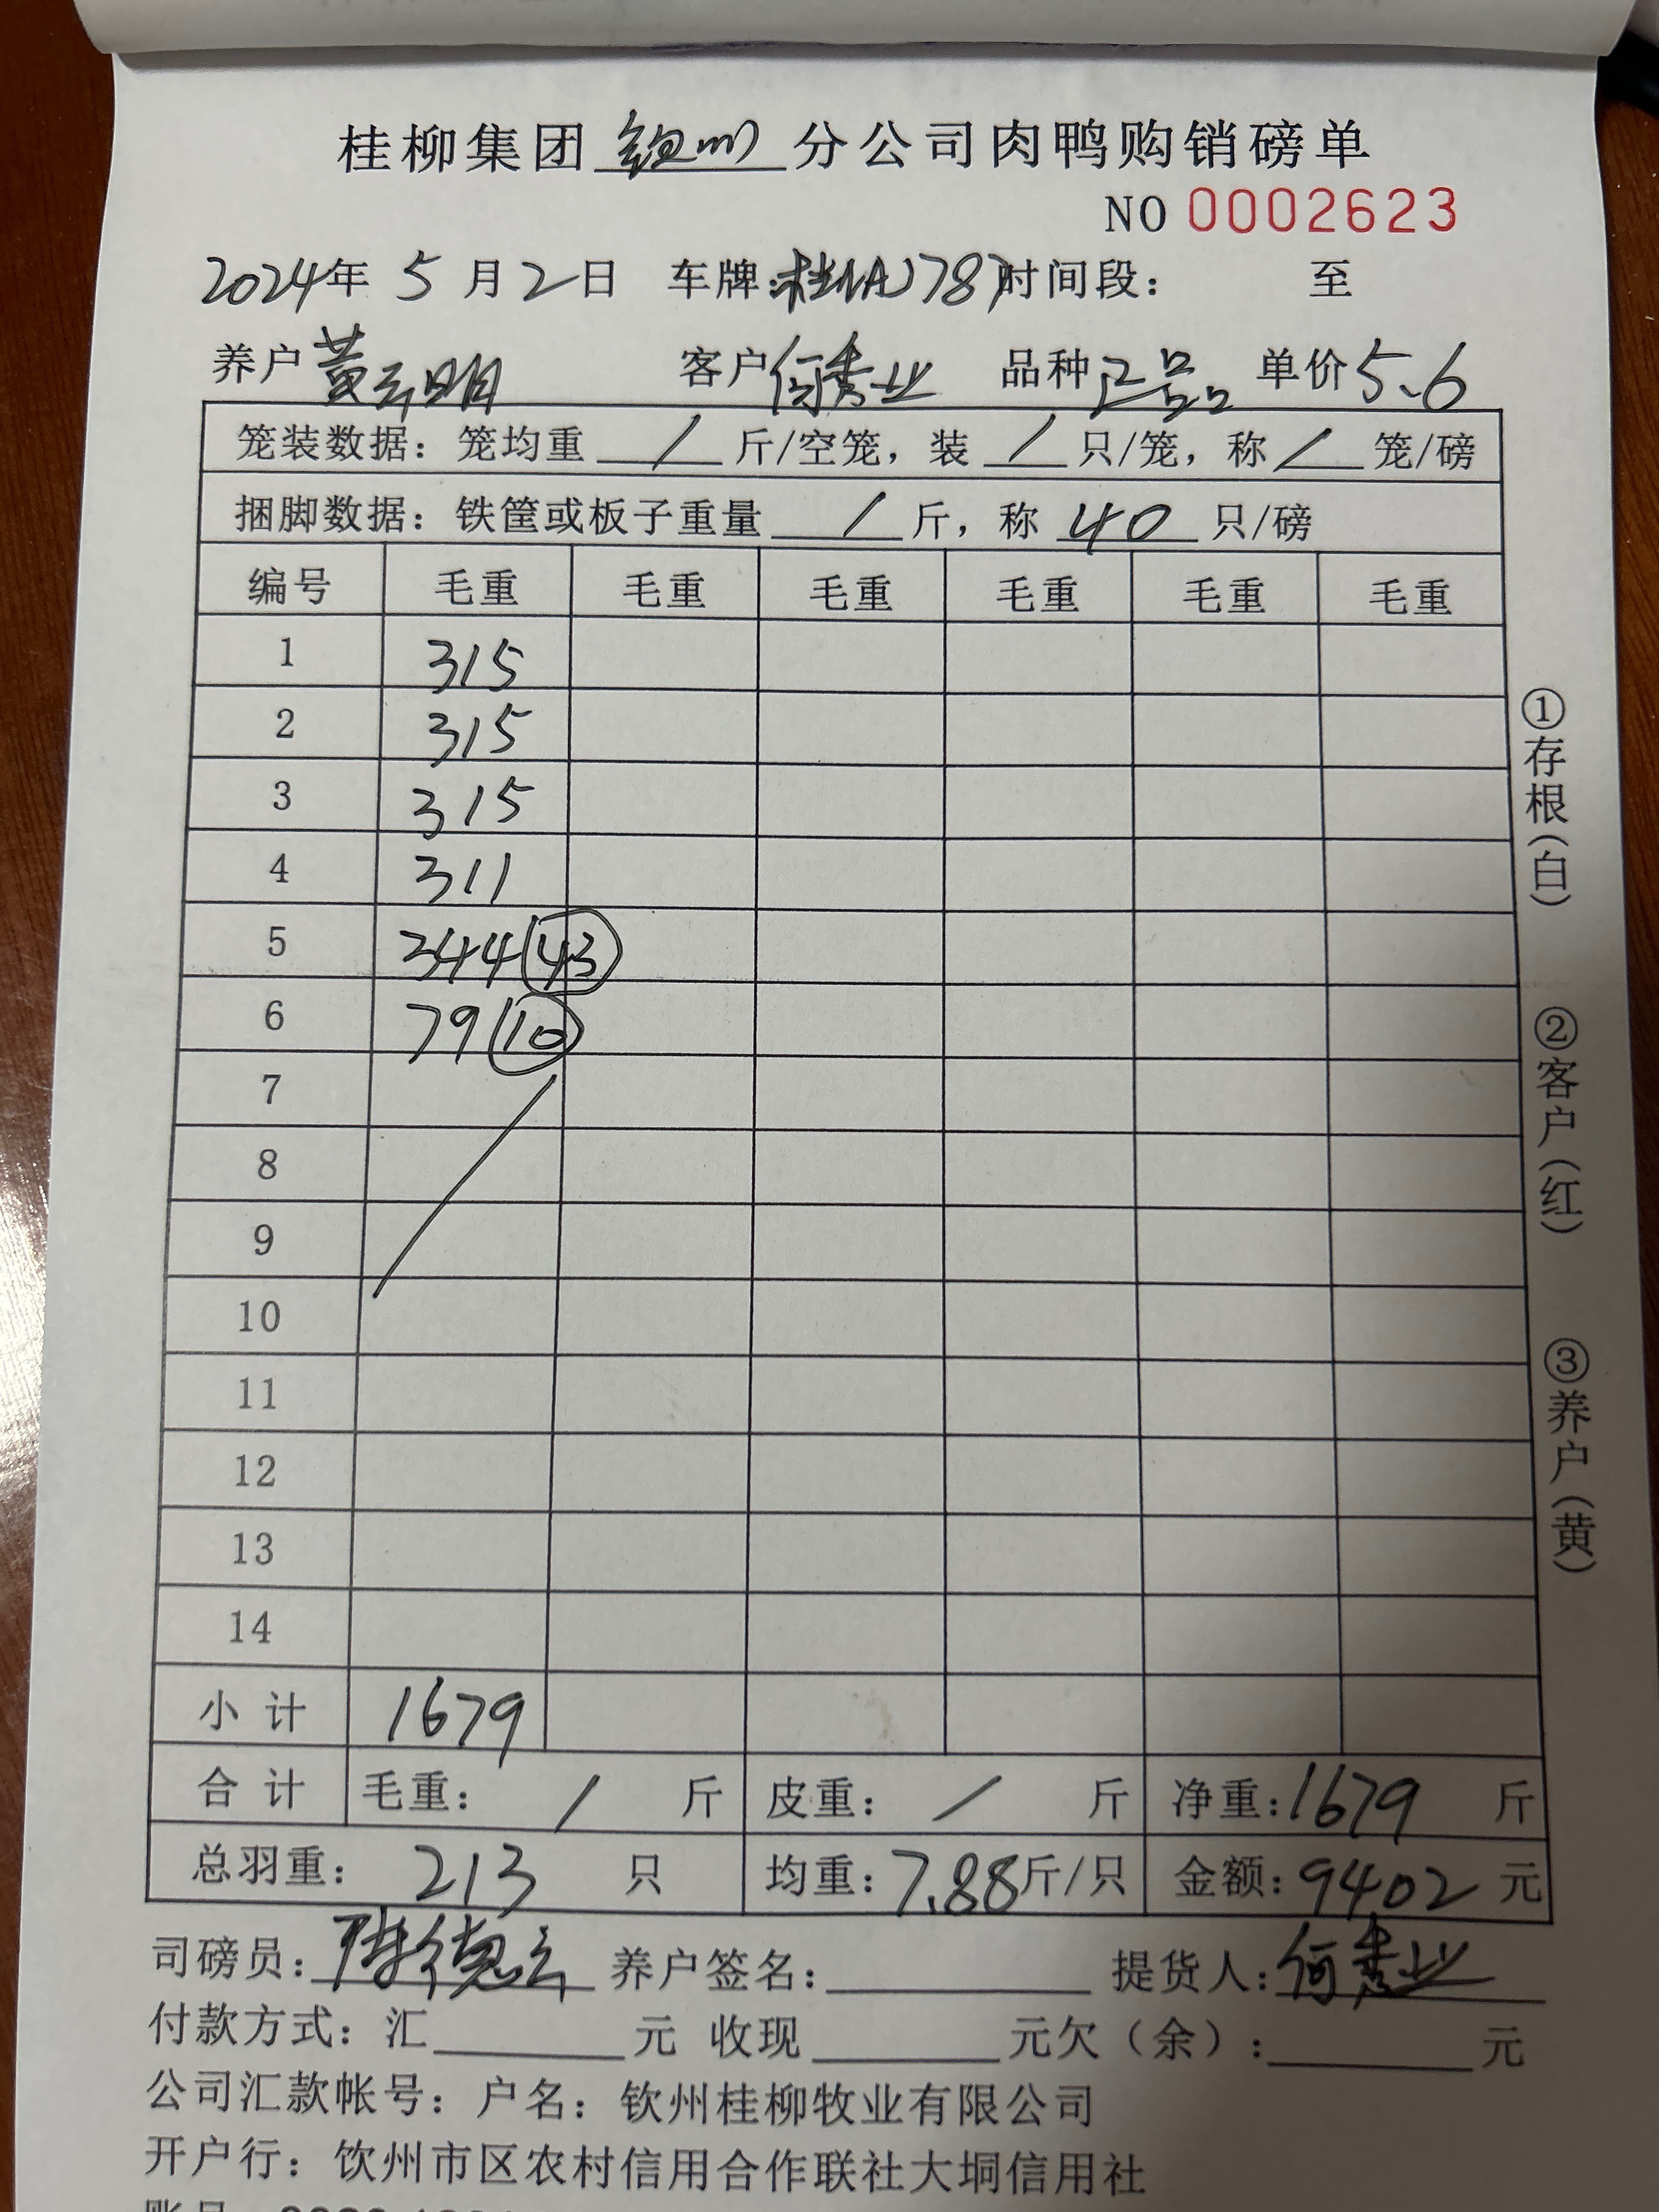 桂柳集团 钦州 分公司肉鸭购销磅单
NO 0002623
2024年 5 月 2 日 车牌: 时间段: 至
养户 黄云明 客户 何秀业 品种 正品 单价 5.6
笼装数据: 笼均重 / 斤/空笼, 装 / 只/笼, 称 / 笼/磅
捆脚数据: 铁筐或板子重量 / 斤, 称 40 只/磅
编号 毛重 毛重 毛重 毛重 毛重 毛重
1 315
2 315
3 315
4 311
5 344 (43)
6 79 (10)
7
8
9
10
11
12
13
14
小 计 1679
合 计 毛重: / 斤 皮重: / 斤 净重: 1679 斤
总羽重: 213 只 均重: 7.88 斤/只 金额: 9402 元
司磅员: 陈德云 养户签名: 提货人: 何秀业
付款方式: 汇 元 收现 元欠(余): 元
公司汇款帐号: 户名: 钦州桂柳牧业有限公司
开户行: 钦州市区农村信用合作联社大垌信用社
①存根(白)
②客户(红)
③养户(黄)